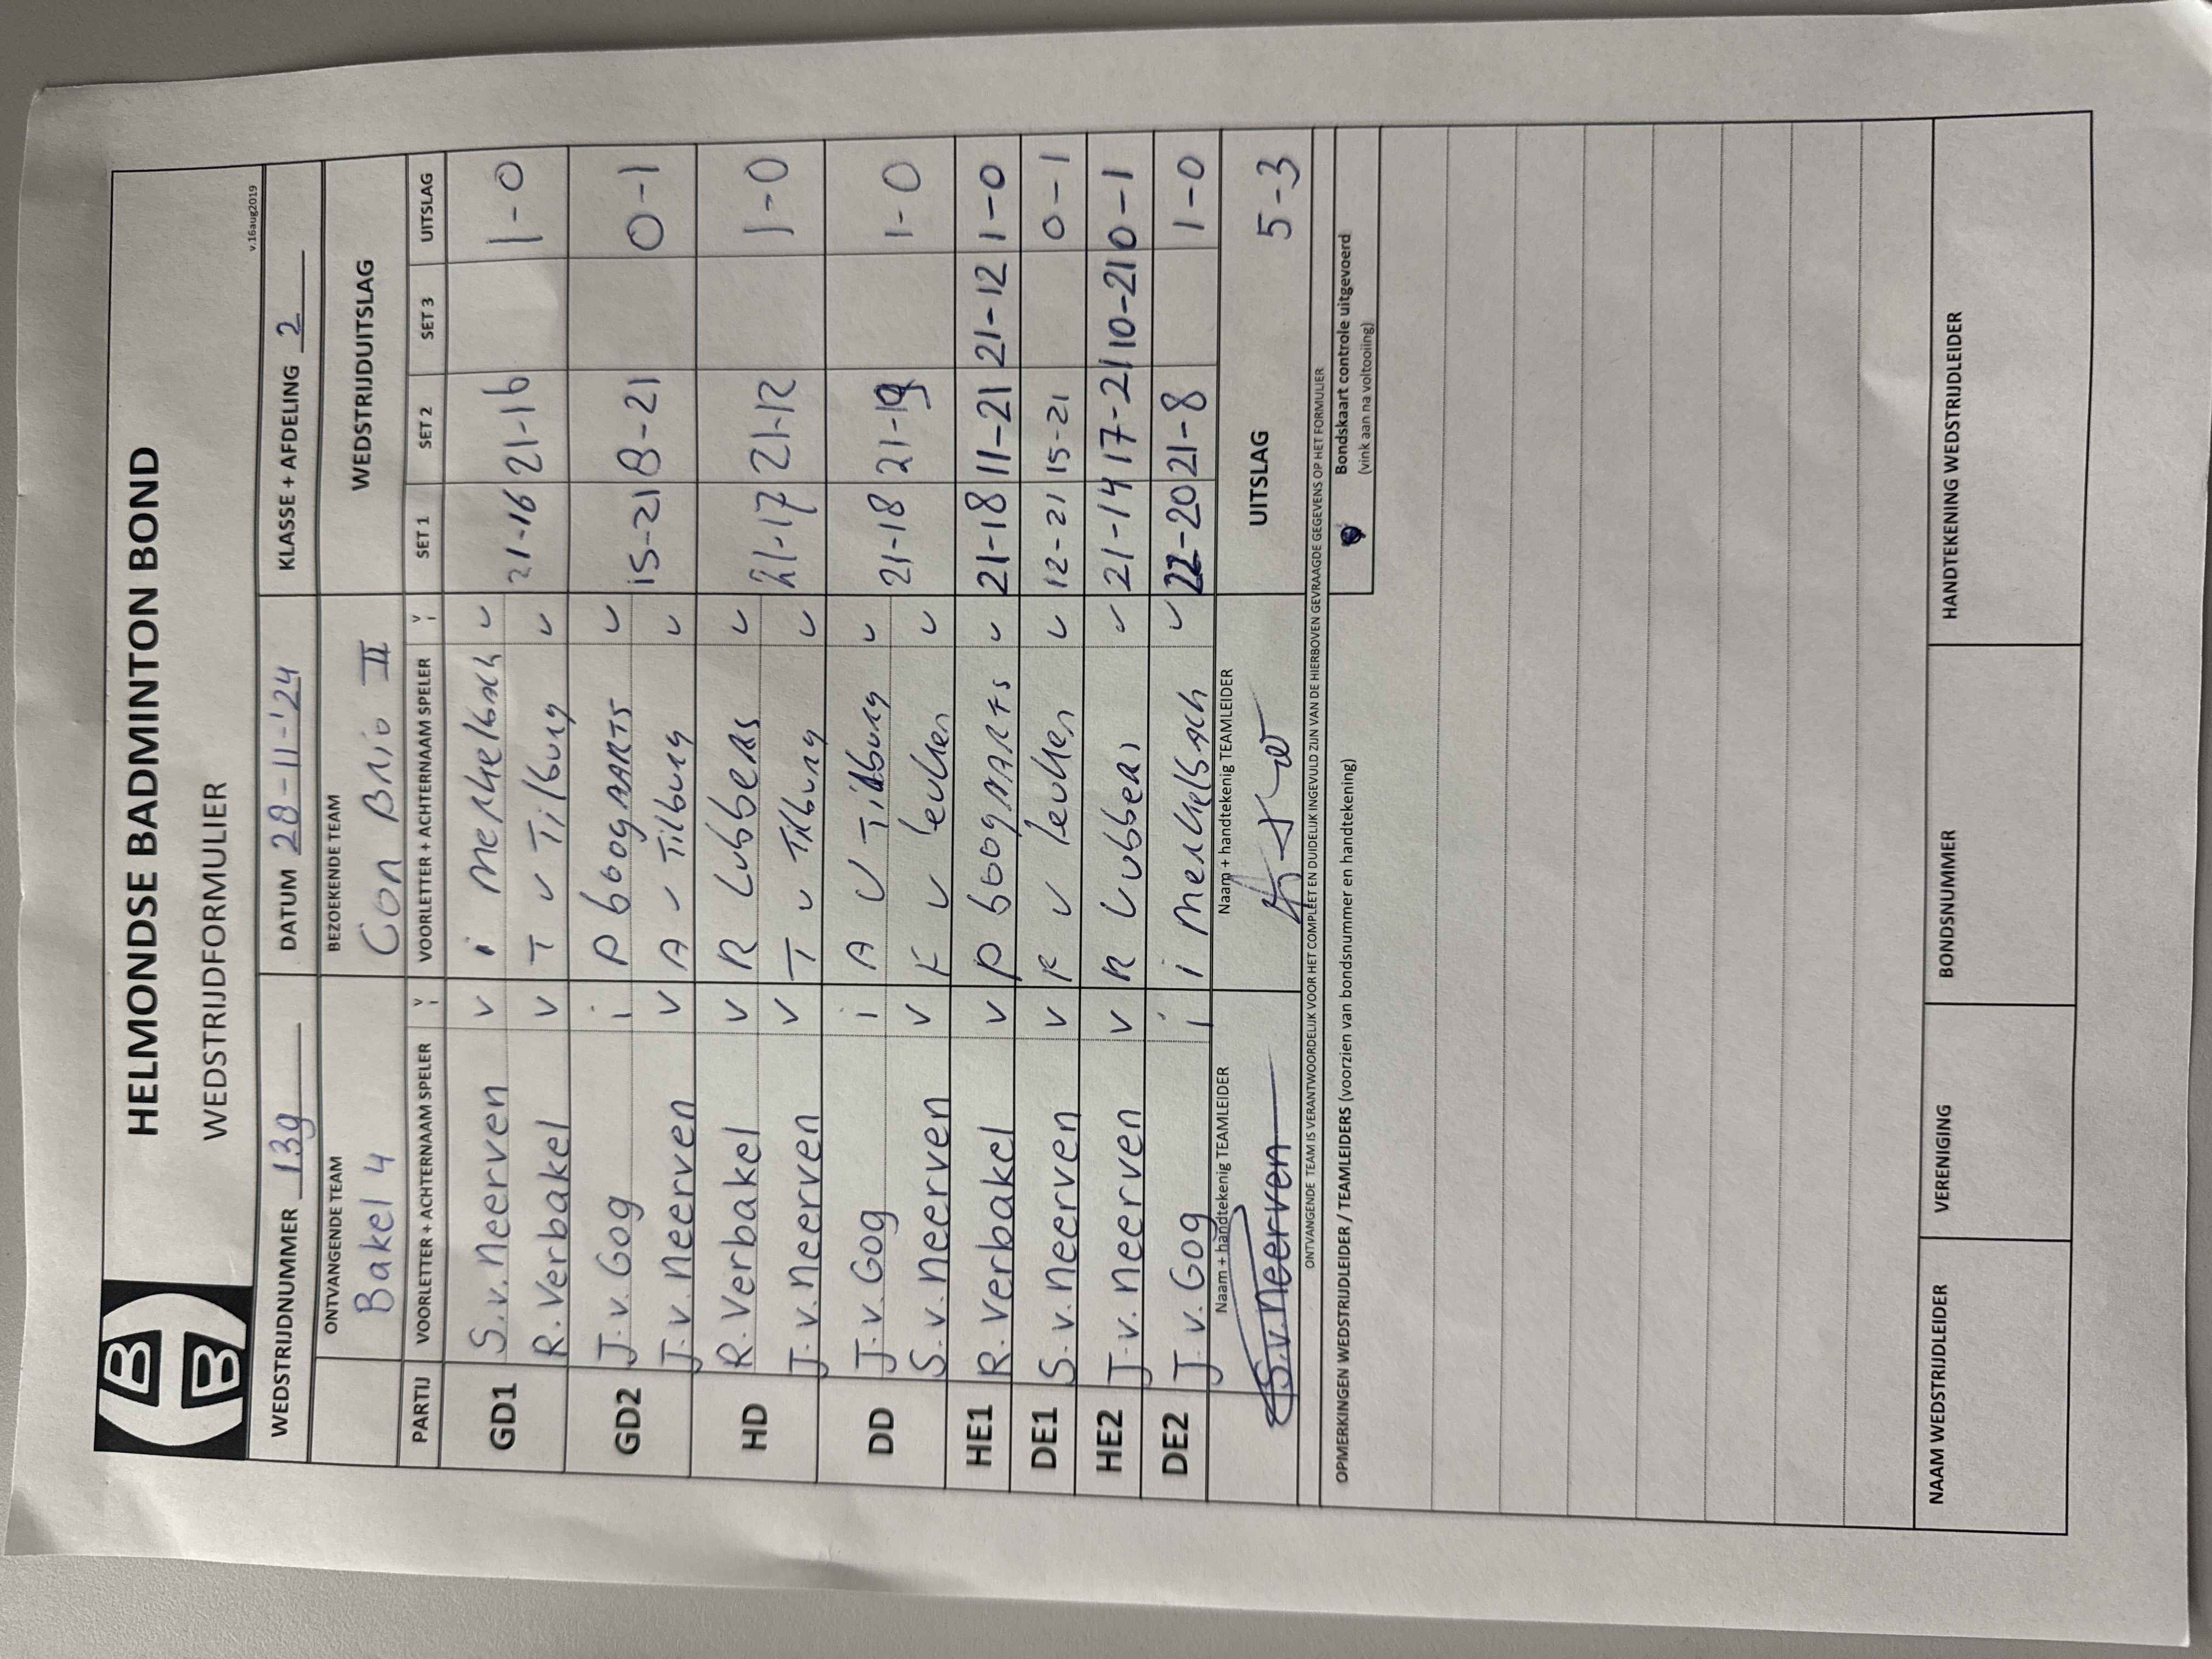 HELMONDSE BADMINTON BOND
WEDSTRIJDFORMULIER
v.16aug2019
WEDSTRIJDNUMMER 139 DATUM 28-11-'24 KLASSE + AFDELING 2
ONTVANGENDE TEAM BEZOEKENDE TEAM WEDSTRIJDUITSLAG
Bakel 4 Con Brio II
PARTIJ VOORLETTER + ACHTERNAAM SPELER V i VOORLETTER + ACHTERNAAM SPELER V i SET 1 SET 2 SET 3 UITSLAG
GD1 S.v.Neerven v i Merkelbach v 21-16 21-16 1-0
R.Verbakel v T v Tilburg v
GD2 J.v.Gog i P boogAARTS v 15-21 8-21 0-1
J.v.Neerven v A v Tilburg v
HD R.Verbakel v R Lubbers v 21-17 21-12 1-0
J.v.Neerven v T v Tilburg v
DD J.v.Gog i A v Tilburg v 21-18 21-19 1-0
S.v.Neerven v F v leuken v
HE1 R.Verbakel v P boogAARTs v 21-18 11-21 21-12 1-0
DE1 S.v.Neerven v F v leuken v 12-21 15-21 0-1
HE2 J.v.Neerven v R Lubbers v 21-14 17-21 10-21 0-1
DE2 J.v.Gog i i Merkelbach v 22-20 21-8 1-0
Naam + handtekenig TEAMLEIDER Naam + handtekenig TEAMLEIDER UITSLAG 5-3
S.v.Neerven
ONTVANGENDE TEAM IS VERANTWOORDELIJK VOOR HET COMPLEET EN DUIDELIJK INGEVULD ZIJN VAN DE HIERBOVEN GEVRAAGDE GEGEVENS OP HET FORMULIER
OPMERKINGEN WEDSTRIJDLEIDER / TEAMLEIDERS (voorzien van bondsnummer en handtekening)
Bondskaart controle uitgevoerd
(vink aan na voltooiing)
NAAM WEDSTRIJDLEIDER VERENIGING BONDSNUMMER HANDTEKENING WEDSTRIJDLEIDER